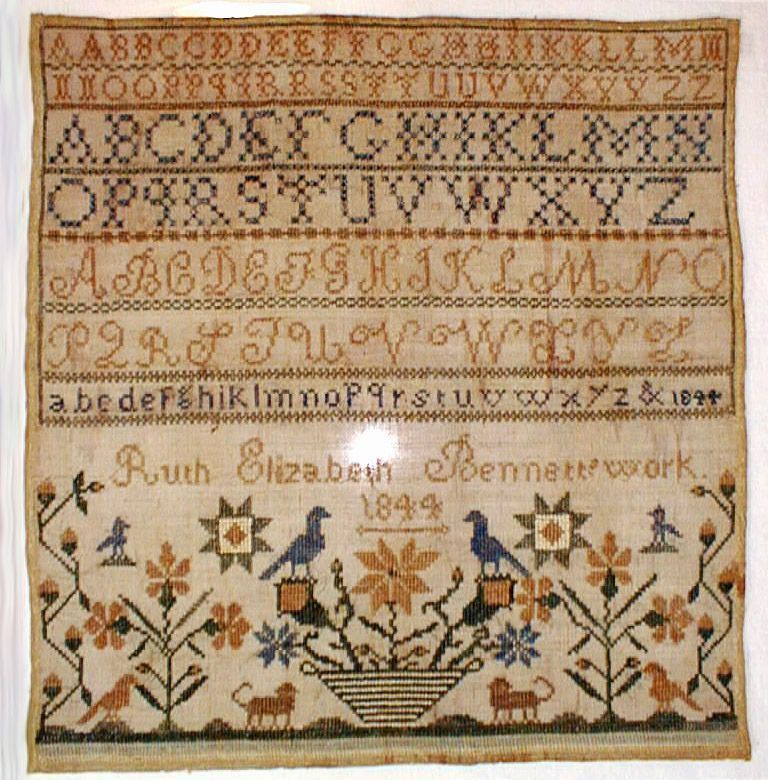 AABBCCDDEEFFGGHHIIKKLLMM
NNOOPPQQRRSSTTUUVWXYYZZ
ABCDEFGHIKLMN
OPQRSTUVWXYZ
ABCDEFGHIKLMNO
PQRSTUVWXYZ
abcdefghiklmnopqrstuvwxyz & 1844
Ruth Elizabeth Bennettswork.
1844